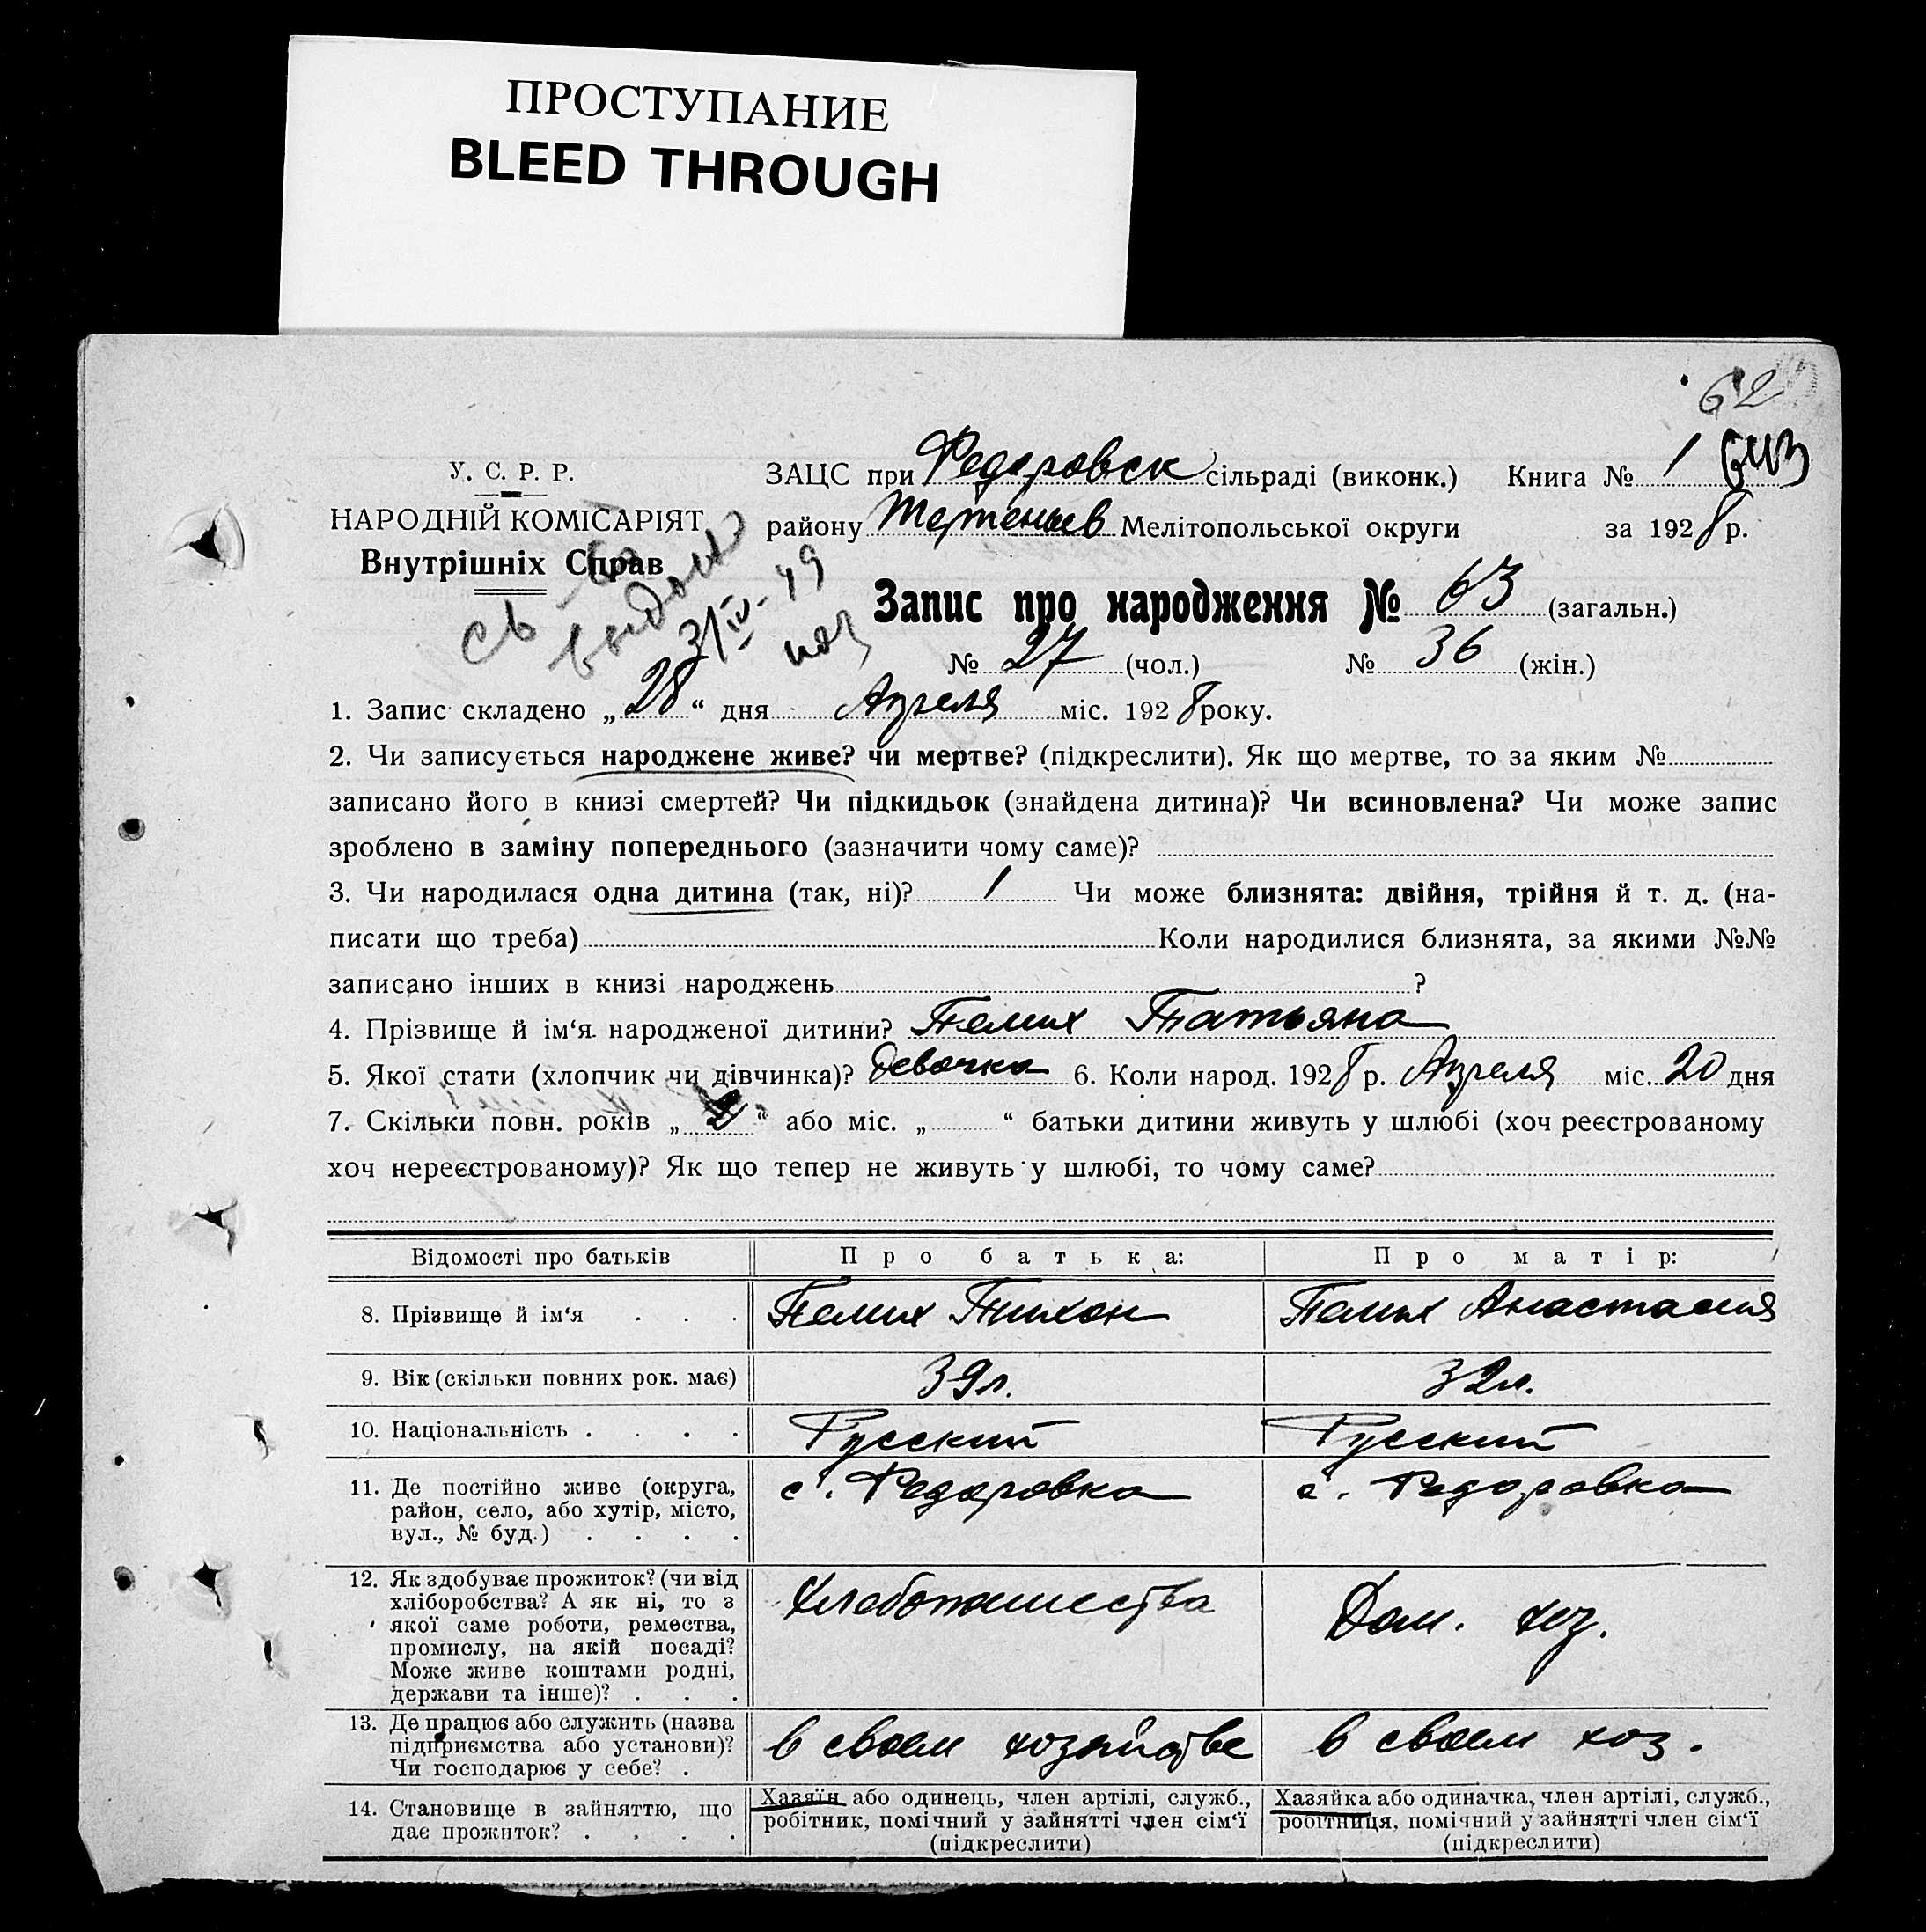 ПРОСТУПАНИЕ
BLEED THROUGH
62
У. С. Р. Р.
НАРОДНІЙ КОМІСАРІЯТ
Внутрішніх Справ
ЗАЦС при Федоровск сільраді (виконк.) Книга № 1
району Мелітопольської округи за 1928 р.
св во
выдон
3/IV-49
Запис про народження № 63 (загальн.)
№ 27 (чол.) № 36 (жін.)
1. Запис складено „28“ дня Апреля міс. 1928 року.
2. Чи записується народжене живе? чи мертве? (підкреслити). Як що мертве, то за яким №
записано його в книзі смертей? Чи підкидьок (знайдена дитина)? Чи всиновлена? Чи може запис
зроблено в заміну попереднього (зазначити чому саме)?
3. Чи народилася одна дитина (так, ні)? 1 Чи може близнята: двійня, трійня й т. д. (на-
писати що треба) Коли народилися близнята, за якими №№
записано інших в книзі народжень ?
4. Прізвище й ім‘я народженої дитини? Пемих Татьяна
5. Якої стати (хлопчик чи дівчинка)? девочка 6. Коли народ. 1928 р. Апреля міс. 20 дня
7. Скільки повн. років „ “ або міс. „ “ батьки дитини живуть у шлюбі (хоч реєстрованому
хоч нереєстрованому)? Як що тепер не живуть у шлюбі, то чому саме?
Відомості про батьків Про батька: Про матір:
8. Прізвище й ім‘я . . . Пемих Тихон Пемих Анастасия
9. Вік (скільки повних рок. має) 39 л. 32 л.
10. Національність . . . . Русский Русский
11. Де постійно живе (округа, с. Федоровка с. Федоровка
район, село, або хутір, місто,
вул., № буд.) . . . .
12. Як здобуває прожиток? (чи від Хлебопашества Дом. хоз.
хліборобства? А як ні, то з
якої саме роботи, ремества,
промислу, на якій посаді?
Може живе коштами родні,
держави та інше)? . . .
13. Де працює або служить (назва в своем хозяйстве в своем хоз.
підприємства або установи)?
Чи господарює у себе? .
14. Становище в зайняттю, що
дає прожиток? . . . .
Хазяїн або одинець, член артілі, служб.,
робітник, помічний у зайнятті член сім‘ї
(підкреслити)
Хазяйка або одиначка, член артілі, служб.,
робітниця, помічний у зайнятті член сім‘ї
(підкреслити)